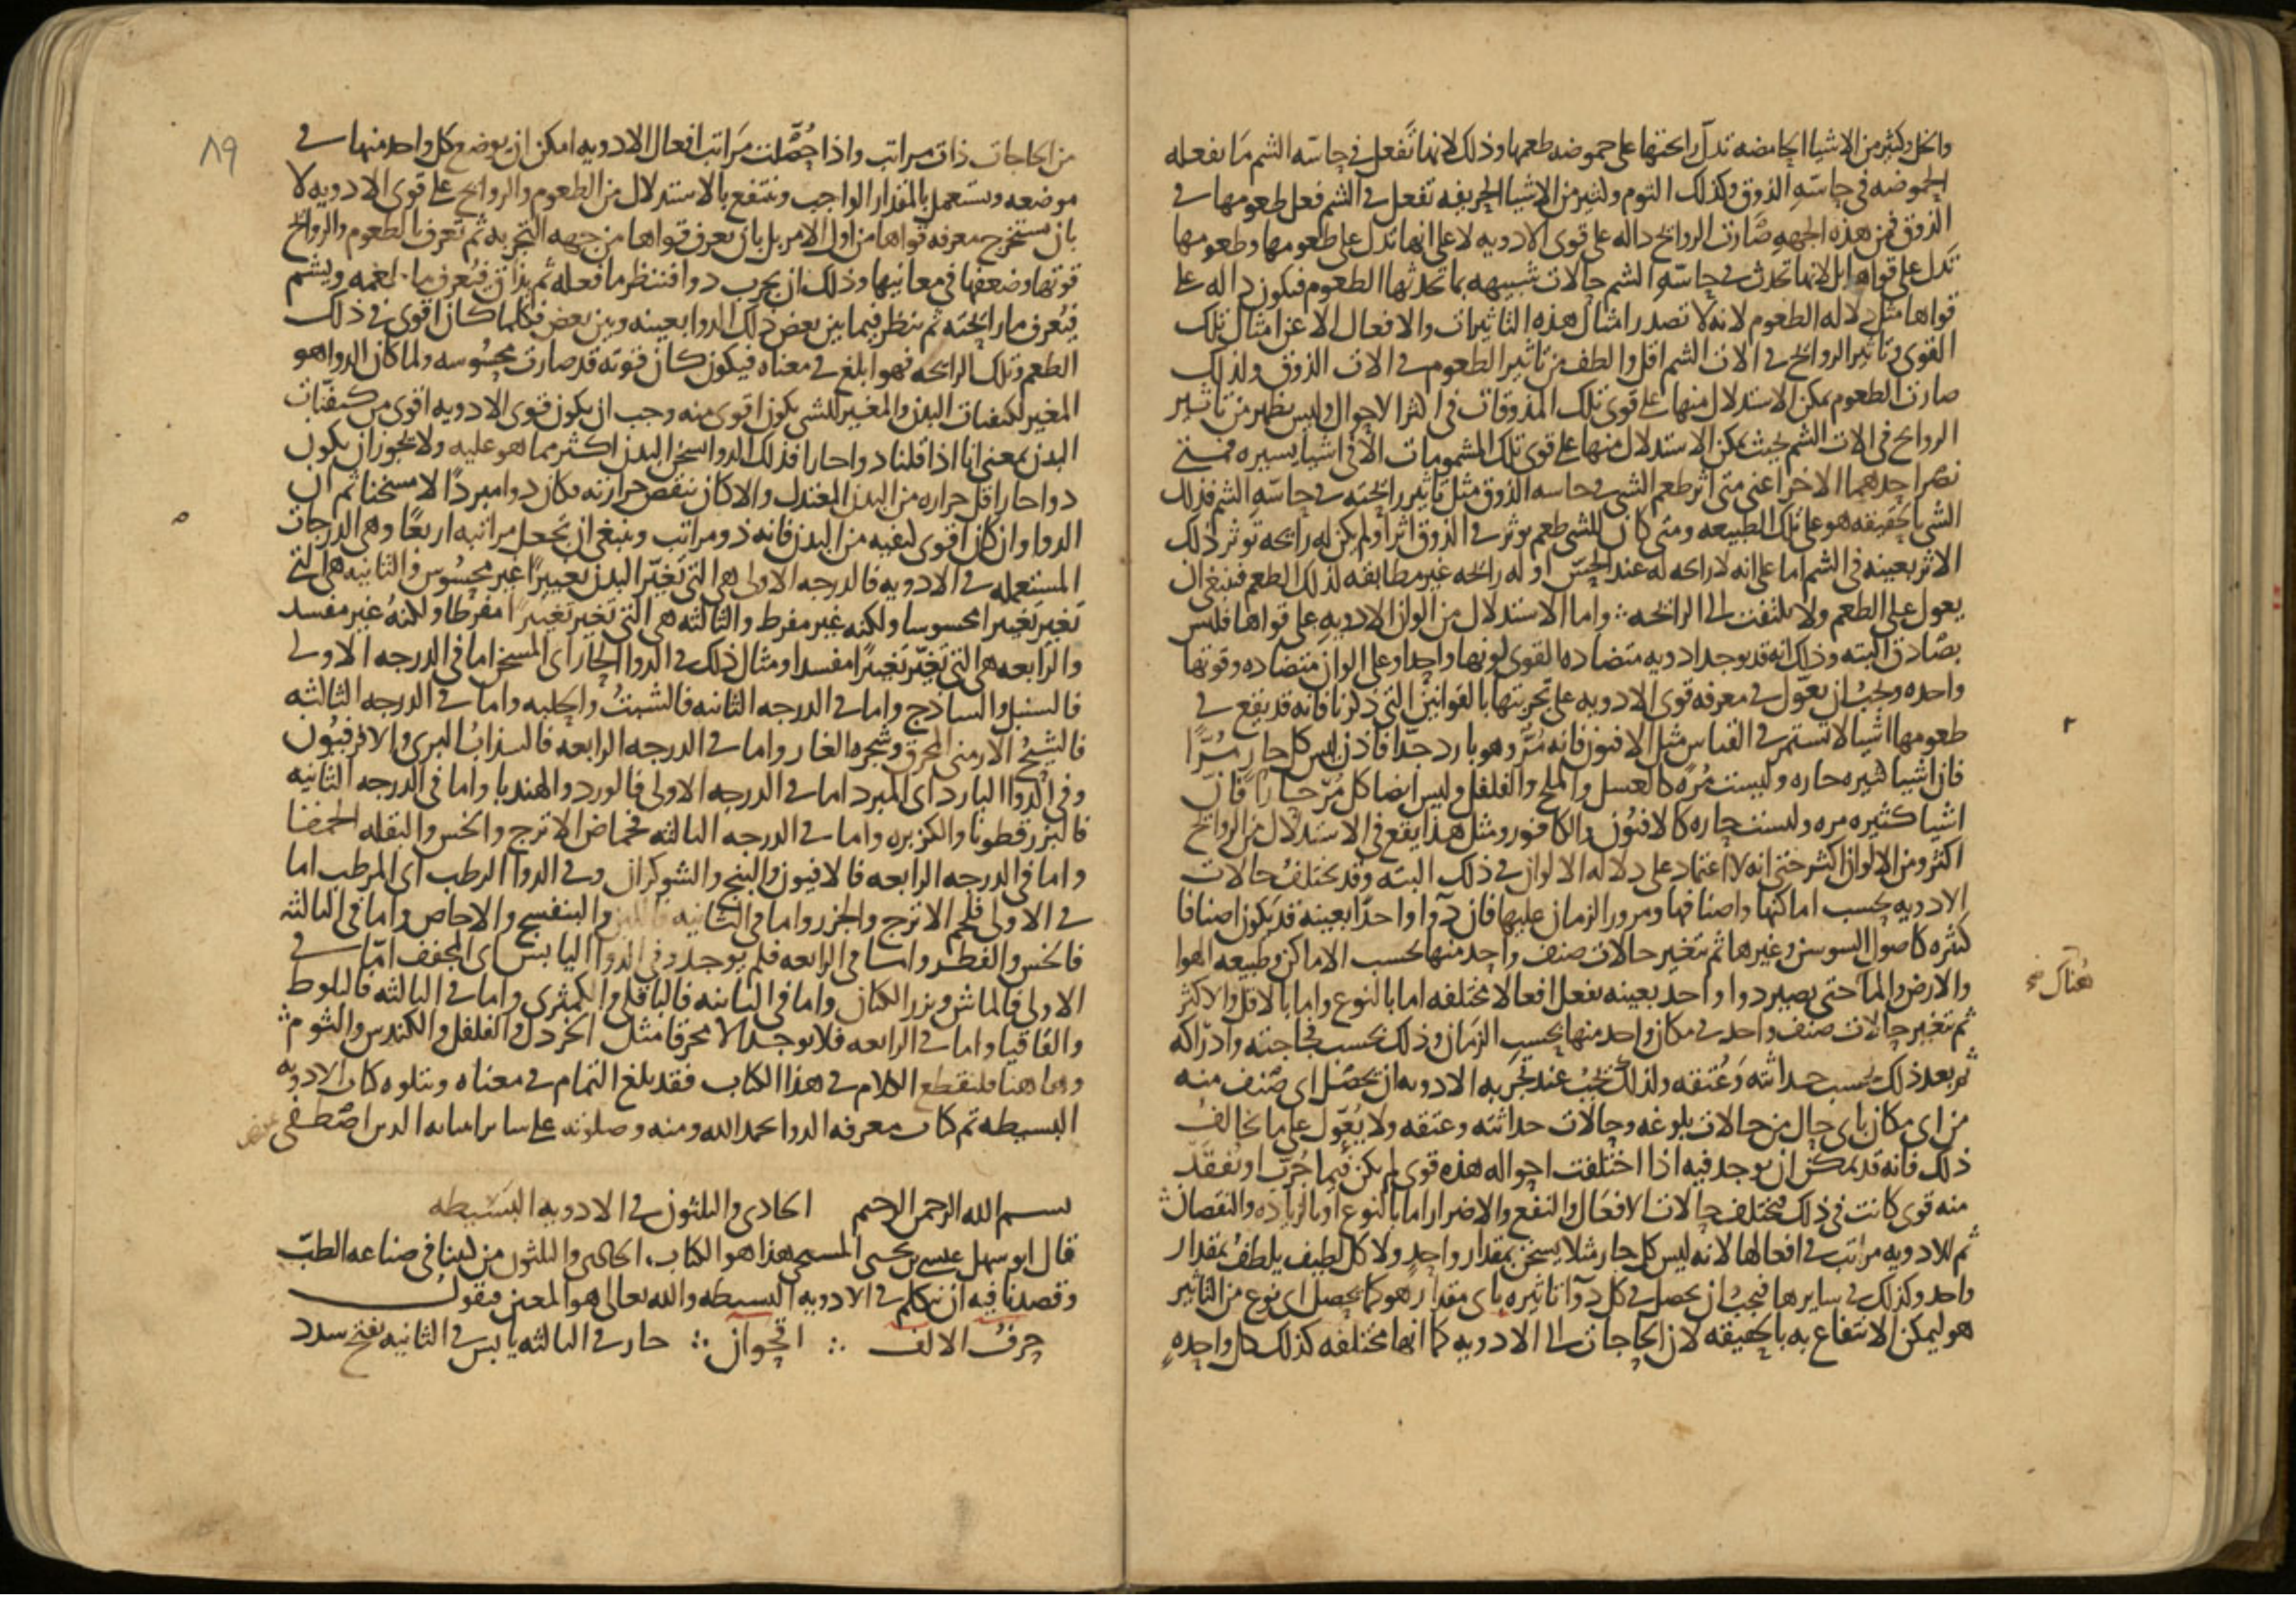 والخل وكثير من الاشيا الحامضه تدل رائحتها على حموضه طعمها وذلك لانها تفعل في حاسه الشم ما تفعله
الحموضه في حاسه الذوق وكذلك الثوم وكثير من الاشيا الحريفه تفعل في الشم فعل طعومها في
الذوق فمن هذه الجهه صارت الروايح داله على قوى الادويه لا على انها تدل على طعومها وطعومها
تدل على قواها بل لانها تحدث في حاسه الشم حالات شبيهه بما تحدثها الطعوم فتكون داله على
قواها مثل دلاله الطعوم لانه لا تصدر امثال هذه التاثيرات والافعال الا عن امثال تلك
القوى وتاثير الروايح في الات الشم اقل والطف من تاثير الطعوم في الات الذوق ولذلك
صارت الطعوم يمكن الاستدلال منها على قوى تلك المذوقات في اكثر الاحوال وليس يظهر من تاثير
الروايح في الات الشم بحيث يمكن الاستدلال منها على قوى تلك المشمومات الا في اشيا يسيره فمتى
نصر احدهما الاخر اعني متى اثر طعم الشي في حاسه الذوق مثل تاثير رائحته في حاسه الشم فذلك
الشي بالحقيقه هو على تلك الطبيعه ومتى كان للشي طعم يوثر في الذوق اثرا ولم يكن له رائحه توثر ذلك
الاثر بعينه في الشم اما على انه لا رائحه له عند الحس او له رائحه غير مطابقه لذلك الطعم فينبغي ان
يعول على الطعم ولا يلتفت الى الرائحه ؞ واما الاستدلال من الوان الادويه على قواها فليس
بصادق البته وذلك انه قد يوجد ادويه متضاده القوى لونها واحد وعلى الوان متضاده وقوتها
واحده ويجب ان يعول في معرفه قوى الادويه على تجربتها بالقوانين التي ذكرنا فانه قد يقع في
طعومها اشيا لا تستمر في القياس مثل الافيون فانه مر وهو بارد جدا فاذن ليس كل حار مرا
فان اشيا كثيره حاره وليست مره كالعسل والملح والفلفل وليس ايضا كل مر حارا فان
اشيا كثيره مره وليست حاره كالافيون والكافور ومثل هذا يقع في الاستدلال من الروايح
اكثر ومن الالوان اكثر حتى انه لا اعتماد على دلاله الالوان في ذلك البته وقد تختلف حالات
الادويه بحسب اماكنها واصنافها ومرور الزمان عليها فان دوا واحدا بعينه قد يكون اصنافا
كثيره كاصول السوسن وغيرها ثم تتغير حالات صنف واحد منها بحسب الاماكن وطبيعه الهوا
هناك صح
والارض والما حتى يصير دوا واحد بعينه يفعل افعالا مختلفه اما بالنوع واما بالاقل والاكثر
ثم تتغير حالات صنف واحد في مكان واحد منها بحسب الزمان وذلك بحسب فجاجته وادراكه
ثم بعد ذلك بحسب حداثته وعتقه ولذلك يجب عند تجربه الادويه ان يحصل اى صنف منه
من اى مكان باى حال من حالات بلوغه وحالات حداثته وعتقه ولا يعول على ما يخالف
ذلك فانه قد يمكن ان يوجد فيه اذا اختلفت احواله هذه قوى لم يكن فيما جرب او تفقد
منه قوى كانت في ذلك فتختلف حالات الافعال والنفع والاضرار اما بالنوع او بالزياده والنقصان
ثم للادويه مراتب في افعالها لانه ليس كل حار مثلا يسخن بمقدار واحد ولا كل لطيف يلطف بمقدار
واحد وكذلك في سايرها فيجب ان يحصل في كل دوا تاثيره باى مقدار هو كما يحصل اى نوع من التاثير
هو ليمكن الانتفاع به بالحقيقه لان الحاجات الى الادويه كما انها مختلفه كذلك كل واحده
٨٩
من الحاجات ذات مراتب واذا حصلت مراتب افعال الادويه امكن ان يوضع كل واحد منها في
موضعه ويستعمل بالمقدار الواجب وننتفع بالاستدلال من الطعوم والروايح على قوى الادويه لا
بان نستخرج معرفه قواها من اول الامر بل بان تعرف قواها من جهه التجربه ثم تعرف بالطعوم والروايح
قوتها وضعفها في معانيها وذلك ان يجرب دوا فننظر ما فعله ثم يذاق فيعرف ما طعمه ويشم
فيعرف ما رائحته ثم ينظر فيما بين بعض ذلك الدوا بعينه وبين بعض فكلما كان اقوى في ذلك
الطعم وتلك الرائحه فهو ابلغ في معناه فيكون كان قوته قد صارت محسوسه ولما كان الدوا هو
المغير لكيفيات البدن والمغير للشي يكون اقوى منه وجب ان يكون قوى الادويه اقوى من كيفيات
البدن بمعنى انا اذا قلنا دوا حارا فذلك الدوا يسخن البدن اكثر مما هو عليه ولا يجوز ان يكون
دوا حار اقل حراره من البدن المعتدل والا كان ينقص حرارته فكان دوا مبردا لا مسخنا ثم ان
الدوا وان كان اقوى كيفيه من البدن فانه ذو مراتب وينبغي ان تجعل مراتبه اربعا وهي الدرجات
المستعمله في الادويه فالدرجه الاولى هي التي تغير البدن تغييرا غير محسوس والثانيه هي التي
تغير تغييرا محسوسا ولكنه غير مفرط والثالثه هي التي تغير تغييرا مفرطا ولكنه غير مفسد
والرابعه هي التي تغير تغييرا مفسدا ومثال ذلك في الدوا الحار اى المسخن اما في الدرجه الاولى
فالسنبل والساذج واما في الدرجه الثانيه فالشبت والحلبه واما في الدرجه الثالثه
فالشيح الارمني المحرق وشجره الغار واما في الدرجه الرابعه فالسذاب البري والافربيون
وفي الدوا البارد اى المبرد اما في الدرجه الاولى فالورد والهندبا واما في الدرجه الثانيه
فالبزرقطونا والكزبره واما في الدرجه الثالثه فحماض الاترج والخس والبقله الحمقا
واما في الدرجه الرابعه فالافيون والبنج والشوكران وفي الدوا الرطب اى المرطب اما
في الاولى فلحم الاترج والجزر واما في الثانيه والبنفسج والاجاص واما في الثالثه
فالخس والفطر واما في الرابعه فلم يوجد وفي الدوا اليابس اى المجفف اما في
الاولى فالماش وبزر الكتان واما في الثانيه فالباقلى والكمثرى واما في الثالثه فالبلوط
والقاقيا واما في الرابعه فلا يوجد الا محرقا مثل الخردل والفلفل والكندس والثوم ؞
وهاهنا فلنقطع الكلام في هذا الكتاب فقد بلغ التمام في معناه ويتلوه كتاب الادويه
البسيطه تم كتاب معرفه الدوا بحمد الله ومنه وصلوته على ساير انبيائه الذين اصطفى
بسم الله الرحمن الرحيم الحادى والثلثون في الادويه البسيطه
قال ابو سهل عيسى بن يحيى المسيحي هذا هو الكتاب الحادى والثلثون من كتبنا في صناعه الطب
وقصدنا فيه ان نتكلم في الادويه البسيطه والله تعالى هو المعين فنقول
حرف الالف ؞ اقحوان ؞ حار في الثالثه يابس في الثانيه يفتح سدد